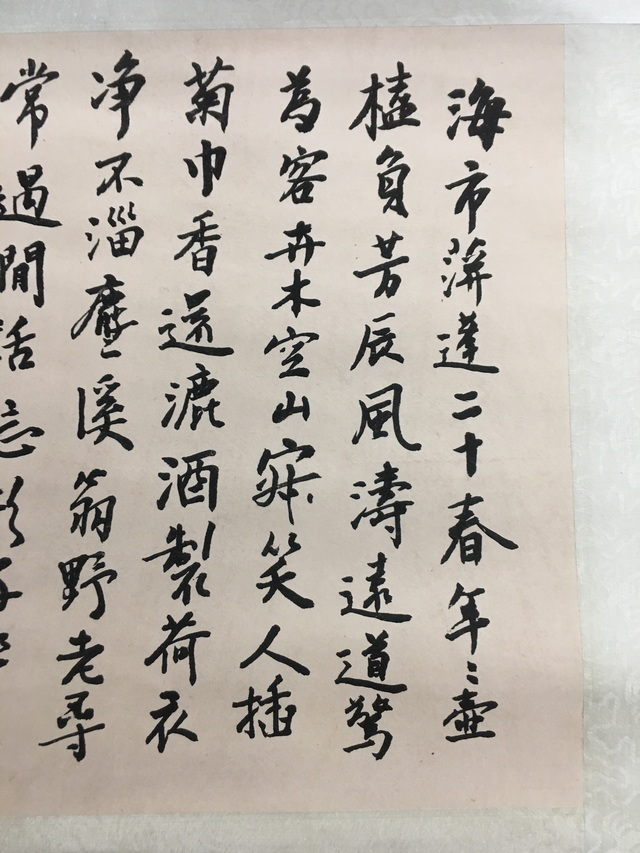 海市蓱蓬二十春年〻壺
榼負芳辰風濤遠道驚
為客卉木空山寂笑人插
菊巾香還漉酒製荷衣
净不淄塵溪翁野老尋
常過閒話忘